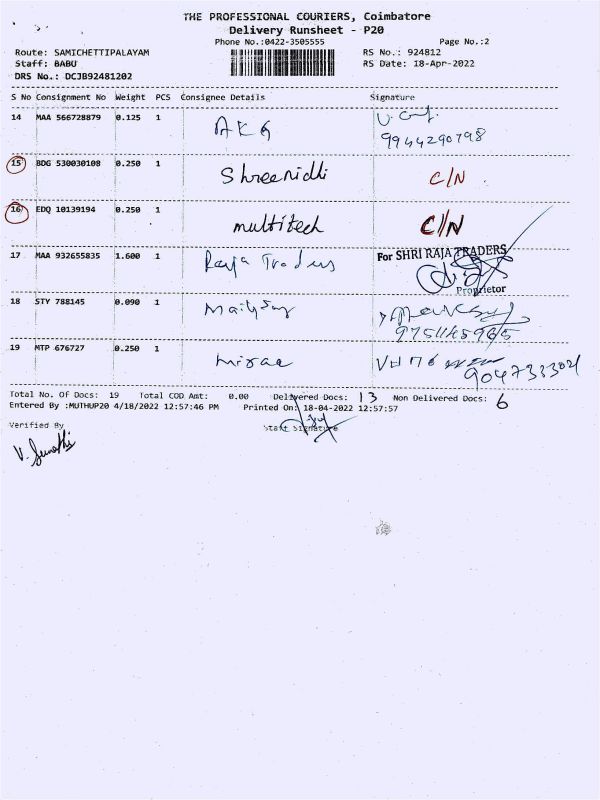 THE PROFESSIONAL COURIERS, Coimbatore
Delivery Runsheet - P20
Phone No.:0422-3505555 Page No.:2
Route: SAMICHETTIPALAYAM RS No.: 924812
Staff: BABU RS Date: 18-Apr-2022
DRS No.: DCJB92481202
S No Consignment No Weight PCS Consignee Details Signature
14 MAA 566728879 0.125 1 AKG
9944290798
15 BDG 530030108 0.250 1 Shreenidhi C/N
16 EDQ 10139194 0.250 1 multitech C/N
17 MAA 932655835 1.600 1 Raja Traders For SHRI RAJA TRADERS
Proprietor
18 STY 788145 0.090 1
19 MTP 676727 0.250 1 mirae
Total No. Of Docs: 19 Total COD Amt: 0.00 Delivered Docs: 13 Non Delivered Docs: 6
Entered By :MUTHUP20 4/18/2022 12:57:46 PM Printed On: 18-04-2022 12:57:57
Verified By Staff Signature